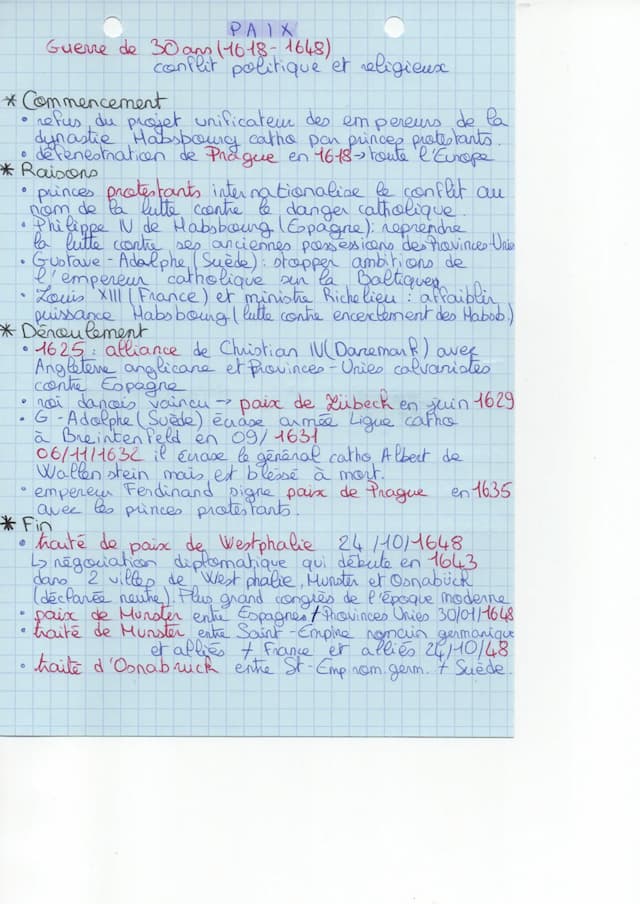 PAIX
Guerre de 30 ans (1618-1648)
conflit politique et religieux
* Commencement
• refus du projet unificateur des empereurs de la
dynastie Habsbourg catho par princes protestants.
• défenestration de Prague en 1618 → toute l'Europe
* Raisons
• princes protestants internationalise le conflit au
nom de la lutte contre le danger catholique.
• Philippe IV de Habsbourg (Espagne) : reprendre
la lutte contre ses anciennes possessions des Provinces-Unie
• Gustave-Adolphe (Suède) : stopper ambitions de
l'empereur catholique sur la Baltique
• Louis XIII (France) et ministre Richelieu : affaiblir
puissance Habsbourg (lutte contre encerclement des Habsb)
* Déroulement
• 1625 : alliance de Christian IV (Danemark) avec
Angleterre anglicane et Provinces-Unies calvinistes
contre Espagne
• roi danois vaincu → paix de Lübeck en juin 1629
• G-Adolphe (Suède) écrase armée Ligue catho
à Breintenfeld en 09/1631
06/11/1632 il écrase le général catho Albert de
Wallenstein mais est blessé à mort.
• empereur Ferdinand signe paix de Prague en 1635
avec les princes protestants.
* Fin
• traité de paix de Westphalie 24/10/1648
↳ négociation diplomatique qui débute en 1643
dans 2 villes de Westphalie, Munster et Osnabück
(déclarée neutre). Plus grand congrès de l'époque moderne
• paix de Munster entre Espagnes / Provinces Unies 30/01/1648
• traité de Munster entre Saint-Empire romain germanique
et alliés + France et alliés 24/10/48
• traité d'Osnabruck entre St-Emp rom. germ. + Suède.